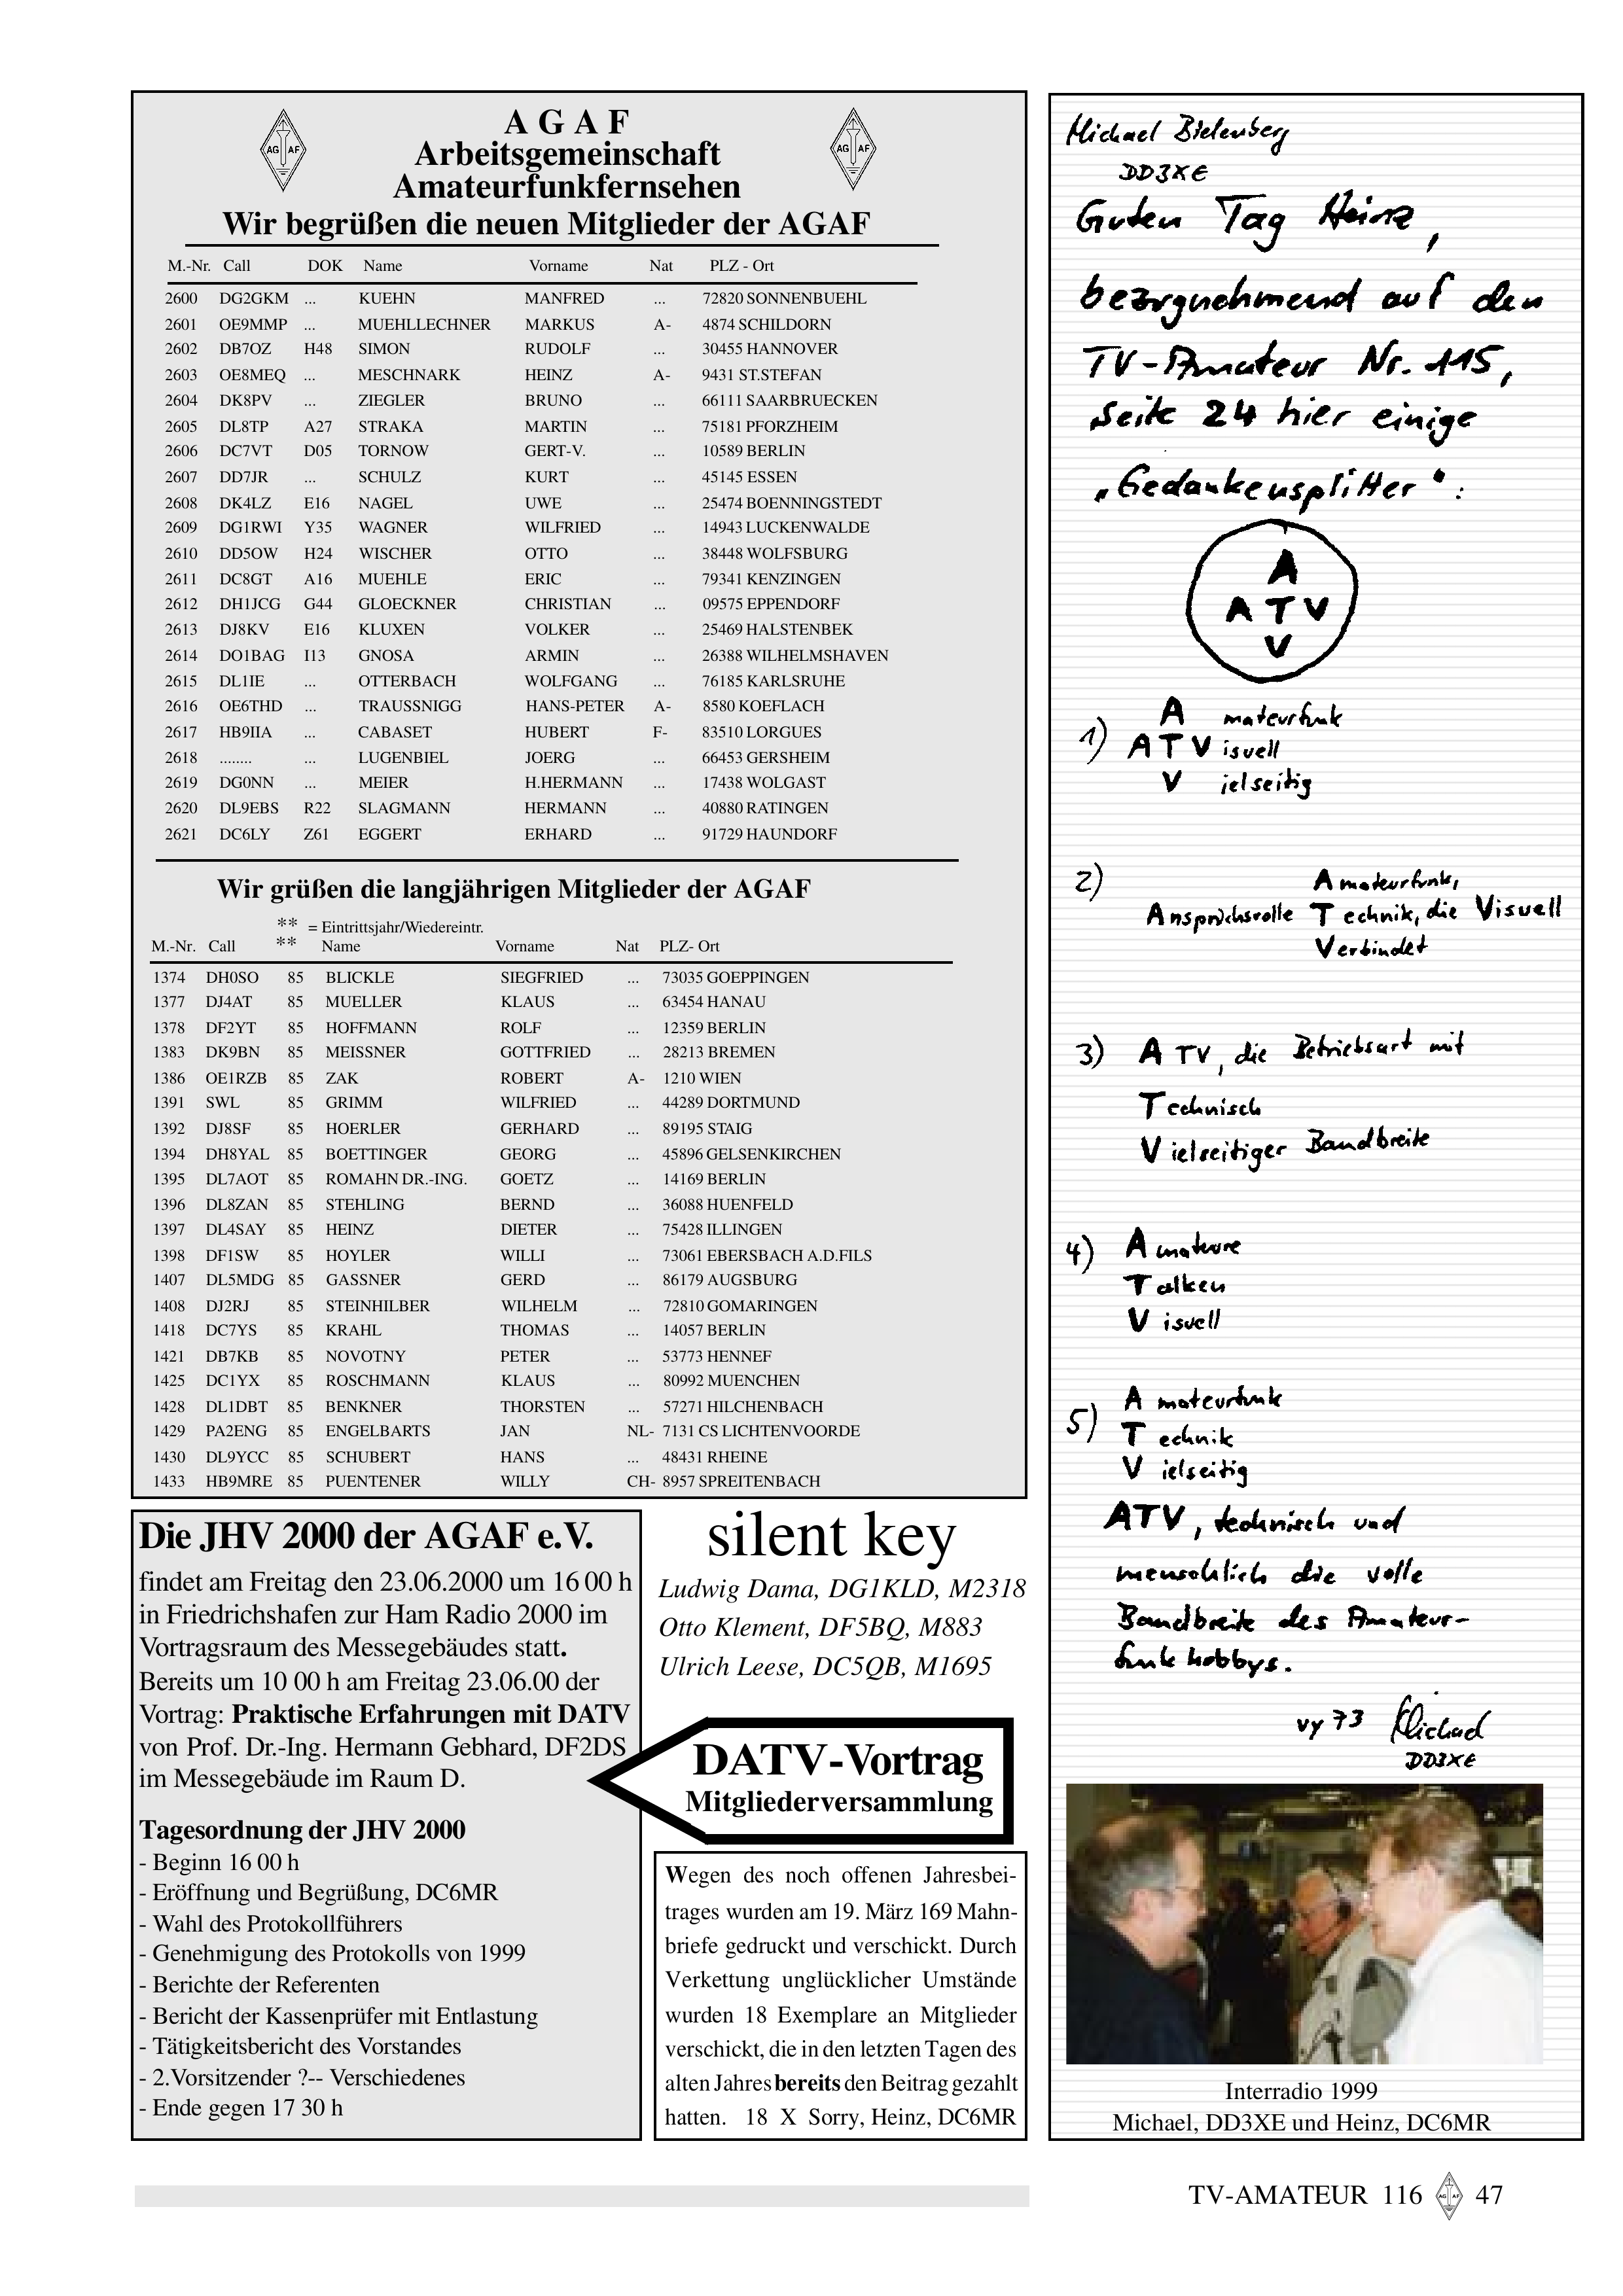 A G A F
Arbeitsgemeinschaft
Amateurfunkfernsehen
AG AF
AG AF
Wir begrüßen die neuen Mitglieder der AGAF
M.-Nr. Call DOK Name Vorname Nat PLZ - Ort
2600 DG2GKM ... KUEHN MANFRED ... 72820 SONNENBUEHL
2601 OE9MMP ... MUEHLLECHNER MARKUS A- 4874 SCHILDORN
2602 DB7OZ H48 SIMON RUDOLF ... 30455 HANNOVER
2603 OE8MEQ ... MESCHNARK HEINZ A- 9431 ST.STEFAN
2604 DK8PV ... ZIEGLER BRUNO ... 66111 SAARBRUECKEN
2605 DL8TP A27 STRAKA MARTIN ... 75181 PFORZHEIM
2606 DC7VT D05 TORNOW GERT-V. ... 10589 BERLIN
2607 DD7JR ... SCHULZ KURT ... 45145 ESSEN
2608 DK4LZ E16 NAGEL UWE ... 25474 BOENNINGSTEDT
2609 DG1RWI Y35 WAGNER WILFRIED ... 14943 LUCKENWALDE
2610 DD5OW H24 WISCHER OTTO ... 38448 WOLFSBURG
2611 DC8GT A16 MUEHLE ERIC ... 79341 KENZINGEN
2612 DH1JCG G44 GLOECKNER CHRISTIAN ... 09575 EPPENDORF
2613 DJ8KV E16 KLUXEN VOLKER ... 25469 HALSTENBEK
2614 DO1BAG I13 GNOSA ARMIN ... 26388 WILHELMSHAVEN
2615 DL1IE ... OTTERBACH WOLFGANG ... 76185 KARLSRUHE
2616 OE6THD ... TRAUSSNIGG HANS-PETER A- 8580 KOEFLACH
2617 HB9IIA ... CABASET HUBERT F- 83510 LORGUES
2618 ........ ... LUGENBIEL JOERG ... 66453 GERSHEIM
2619 DG0NN ... MEIER H.HERMANN ... 17438 WOLGAST
2620 DL9EBS R22 SLAGMANN HERMANN ... 40880 RATINGEN
2621 DC6LY Z61 EGGERT ERHARD ... 91729 HAUNDORF
Wir grüßen die langjährigen Mitglieder der AGAF
** = Eintrittsjahr/Wiedereintr.
M.-Nr. Call ** Name Vorname Nat PLZ- Ort
1374 DH0SO 85 BLICKLE SIEGFRIED ... 73035 GOEPPINGEN
1377 DJ4AT 85 MUELLER KLAUS ... 63454 HANAU
1378 DF2YT 85 HOFFMANN ROLF ... 12359 BERLIN
1383 DK9BN 85 MEISSNER GOTTFRIED ... 28213 BREMEN
1386 OE1RZB 85 ZAK ROBERT A- 1210 WIEN
1391 SWL 85 GRIMM WILFRIED ... 44289 DORTMUND
1392 DJ8SF 85 HOERLER GERHARD ... 89195 STAIG
1394 DH8YAL 85 BOETTINGER GEORG ... 45896 GELSENKIRCHEN
1395 DL7AOT 85 ROMAHN DR.-ING. GOETZ ... 14169 BERLIN
1396 DL8ZAN 85 STEHLING BERND ... 36088 HUENFELD
1397 DL4SAY 85 HEINZ DIETER ... 75428 ILLINGEN
1398 DF1SW 85 HOYLER WILLI ... 73061 EBERSBACH A.D.FILS
1407 DL5MDG 85 GASSNER GERD ... 86179 AUGSBURG
1408 DJ2RJ 85 STEINHILBER WILHELM ... 72810 GOMARINGEN
1418 DC7YS 85 KRAHL THOMAS ... 14057 BERLIN
1421 DB7KB 85 NOVOTNY PETER ... 53773 HENNEF
1425 DC1YX 85 ROSCHMANN KLAUS ... 80992 MUENCHEN
1428 DL1DBT 85 BENKNER THORSTEN ... 57271 HILCHENBACH
1429 PA2ENG 85 ENGELBARTS JAN NL- 7131 CS LICHTENVOORDE
1430 DL9YCC 85 SCHUBERT HANS ... 48431 RHEINE
1433 HB9MRE 85 PUENTENER WILLY CH- 8957 SPREITENBACH
Die JHV 2000 der AGAF e.V.
findet am Freitag den 23.06.2000 um 16 00 h
in Friedrichshafen zur Ham Radio 2000 im
Vortragsraum des Messegebäudes statt.
Bereits um 10 00 h am Freitag 23.06.00 der
Vortrag: Praktische Erfahrungen mit DATV
von Prof. Dr.-Ing. Hermann Gebhard, DF2DS
im Messegebäude im Raum D.
Tagesordnung der JHV 2000
- Beginn 16 00 h
- Eröffnung und Begrüßung, DC6MR
- Wahl des Protokollführers
- Genehmigung des Protokolls von 1999
- Berichte der Referenten
- Bericht der Kassenprüfer mit Entlastung
- Tätigkeitsbericht des Vorstandes
- 2.Vorsitzender ?-- Verschiedenes
- Ende gegen 17 30 h
silent key
Ludwig Dama, DG1KLD, M2318
Otto Klement, DF5BQ, M883
Ulrich Leese, DC5QB, M1695
DATV-Vortrag
Mitgliederversammlung
Wegen des noch offenen Jahresbei-
trages wurden am 19. März 169 Mahn-
briefe gedruckt und verschickt. Durch
Verkettung unglücklicher Umstände
wurden 18 Exemplare an Mitglieder
verschickt, die in den letzten Tagen des
alten Jahres bereits den Beitrag gezahlt
hatten. 18 X Sorry, Heinz, DC6MR
Michael Bielenberg
DD3XE
Guten Tag Heinz,
bezugnehmend auf den
TV-Amateur Nr. 115,
Seite 24 hier einige
„Gedankensplitter":
A
A T V
V
1) A mateurfunk
A T V isuell
V ielseitig
2) Amateurfunk,
Anspruchsvolle Technik, die Visuell
Verbindet
3) A TV, die Betriebsart mit
Technisch
Vielseitiger Bandbreite
4) Amateure
Talken
Visuell
5) Amateurfunk
Technik
Vielseitig
ATV, technisch und
menschlich die volle
Bandbreite des Amateur-
funkhobbys.
vy 73 Michael
DD3XE
Interradio 1999
Michael, DD3XE und Heinz, DC6MR
TV-AMATEUR 116 AG AF 47